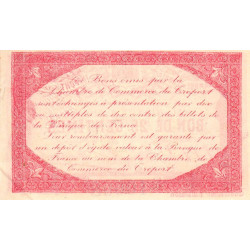 Les Bons émis par la
Chambre de Commerce du Tréport
sont échangés à présentation par des
multiples de dix contre des billets de
la Banque de France
Leur remboursement est garanti par
un dépôt d'égale valeur à la Banque de
France au nom de la Chambre de
Commerce du Tréport